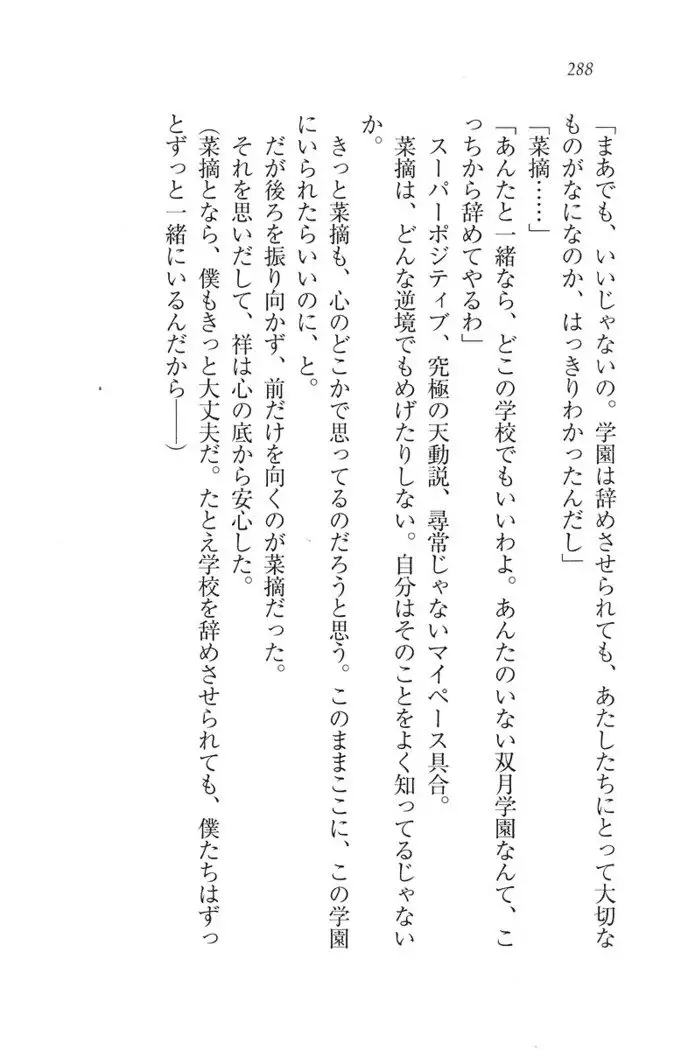 288
「まあでも、いいじゃないの。学園は辞めさせられても、あたしたちにとって大切な
ものがなになのか、はっきりわかったんだし」
「菜摘……」
「あんたと一緒なら、どこの学校でもいいわよ。あんたのいない双月学園なんて、こ
っちから辞めてやるわ」
スーパーポジティブ、究極の天動説、尋常じゃないマイペース具合。
菜摘は、どんな逆境でもめげたりしない。自分はそのことをよく知ってるじゃない
か。
きっと菜摘も、心のどこかで思ってるのだろうと思う。このままここに、この学園
にいられたらいいのに、と。
だが後ろを振り向かず、前だけを向くのが菜摘だった。
それを思いだして、祥は心の底から安心した。
（菜摘となら、僕もきっと大丈夫だ。たとえ学校を辞めさせられても、僕たちはずっ
とずっと一緒にいるんだから――）